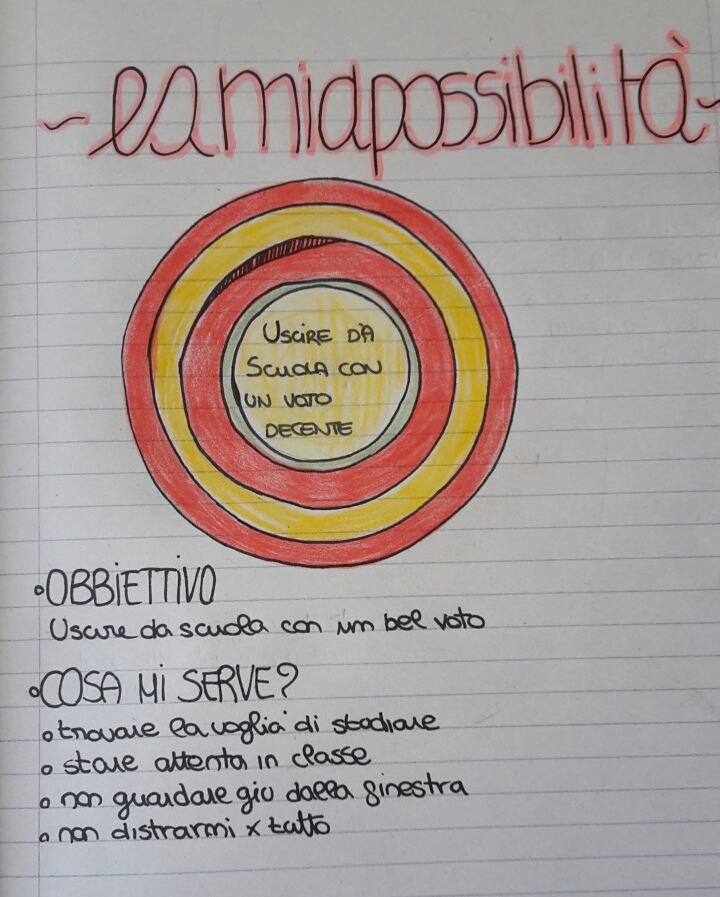 ~la mia possibilità~
USCIRE DA
SCUOLA CON
UN VOTO
DECENTE
•OBBIETTIVO
Uscire da scuola con un bel voto
•COSA MI SERVE?
o trovare la voglia di studiare
o stare attenta in classe
o non guardare giu dalla finestra
o non distrarmi x tutto